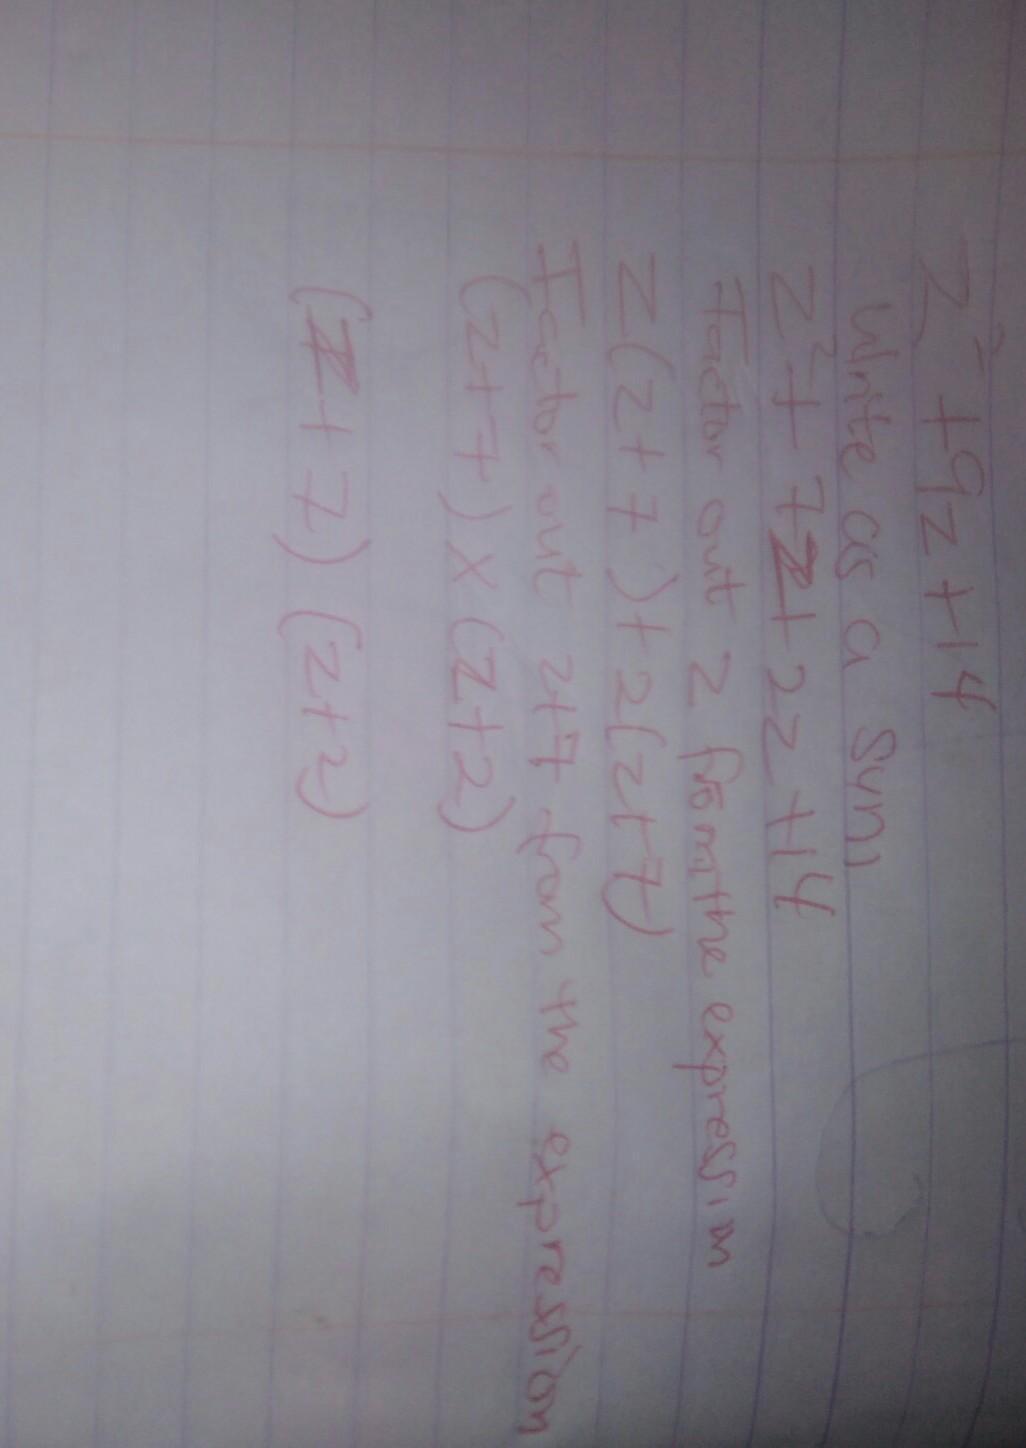 z² + 9z + 14
Write as a sum
z² + 7z + 2z + 14
Factor out z from the expression
z(z + 7) + 2(z + 7)
Factor out z+7 from the expression
(z + 7) x (z + 2)
(z + 7) (z + 2)